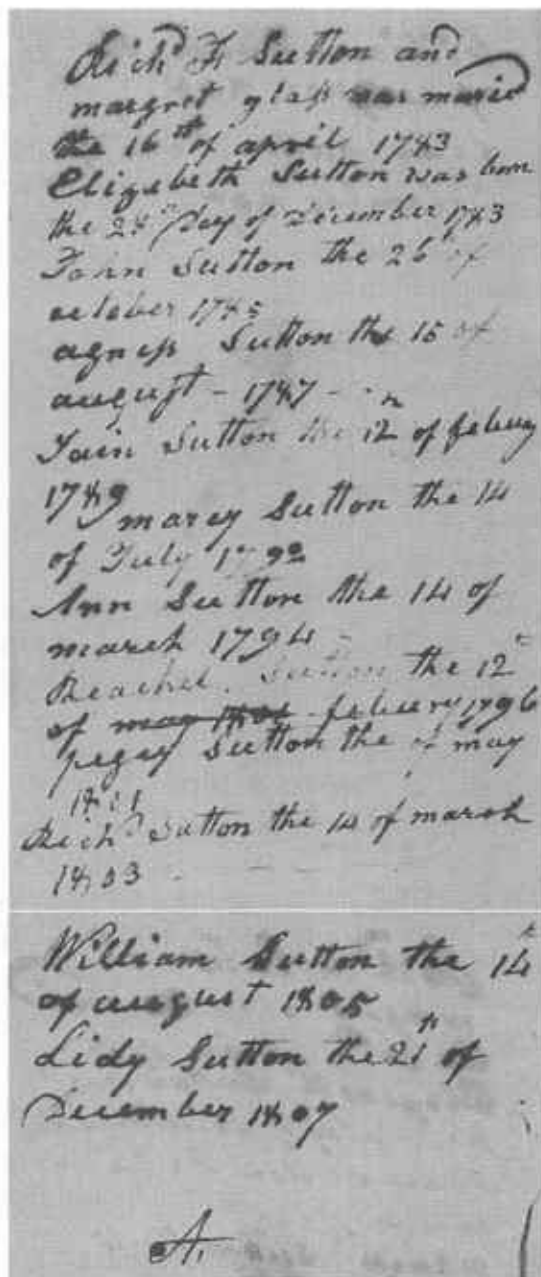 Richd F Sutton and
margret glass was maried
the 16th of april 1783
Elizebeth Sutton was born
the 28th Day of December 1783
John Sutton the 26 of
october 1785
agness Sutton the 15 of
august - 1787 -
Jain Sutton the 12 of febuey
1789
marey Sutton the 14
of July 1792
Ann Sutton the 14 of
march 1794
Reachel Sutton the 12
of may 1801 febuery 1796
pegey Sutton the of may
1801
Richd Sutton the 14 of marsh
1803
William Sutton the 14th
of august 1805
Lidy Sutton the 21th of
December 1807
A.